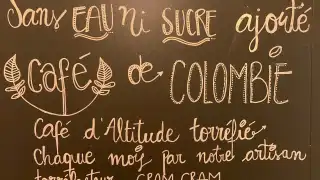 Sans EAU ni SUCRE ajorté
Café de COLOMBIE
Café d'Altitude torréfié
chaque mois par notre artisan
torréfacteur CRAM CRAM